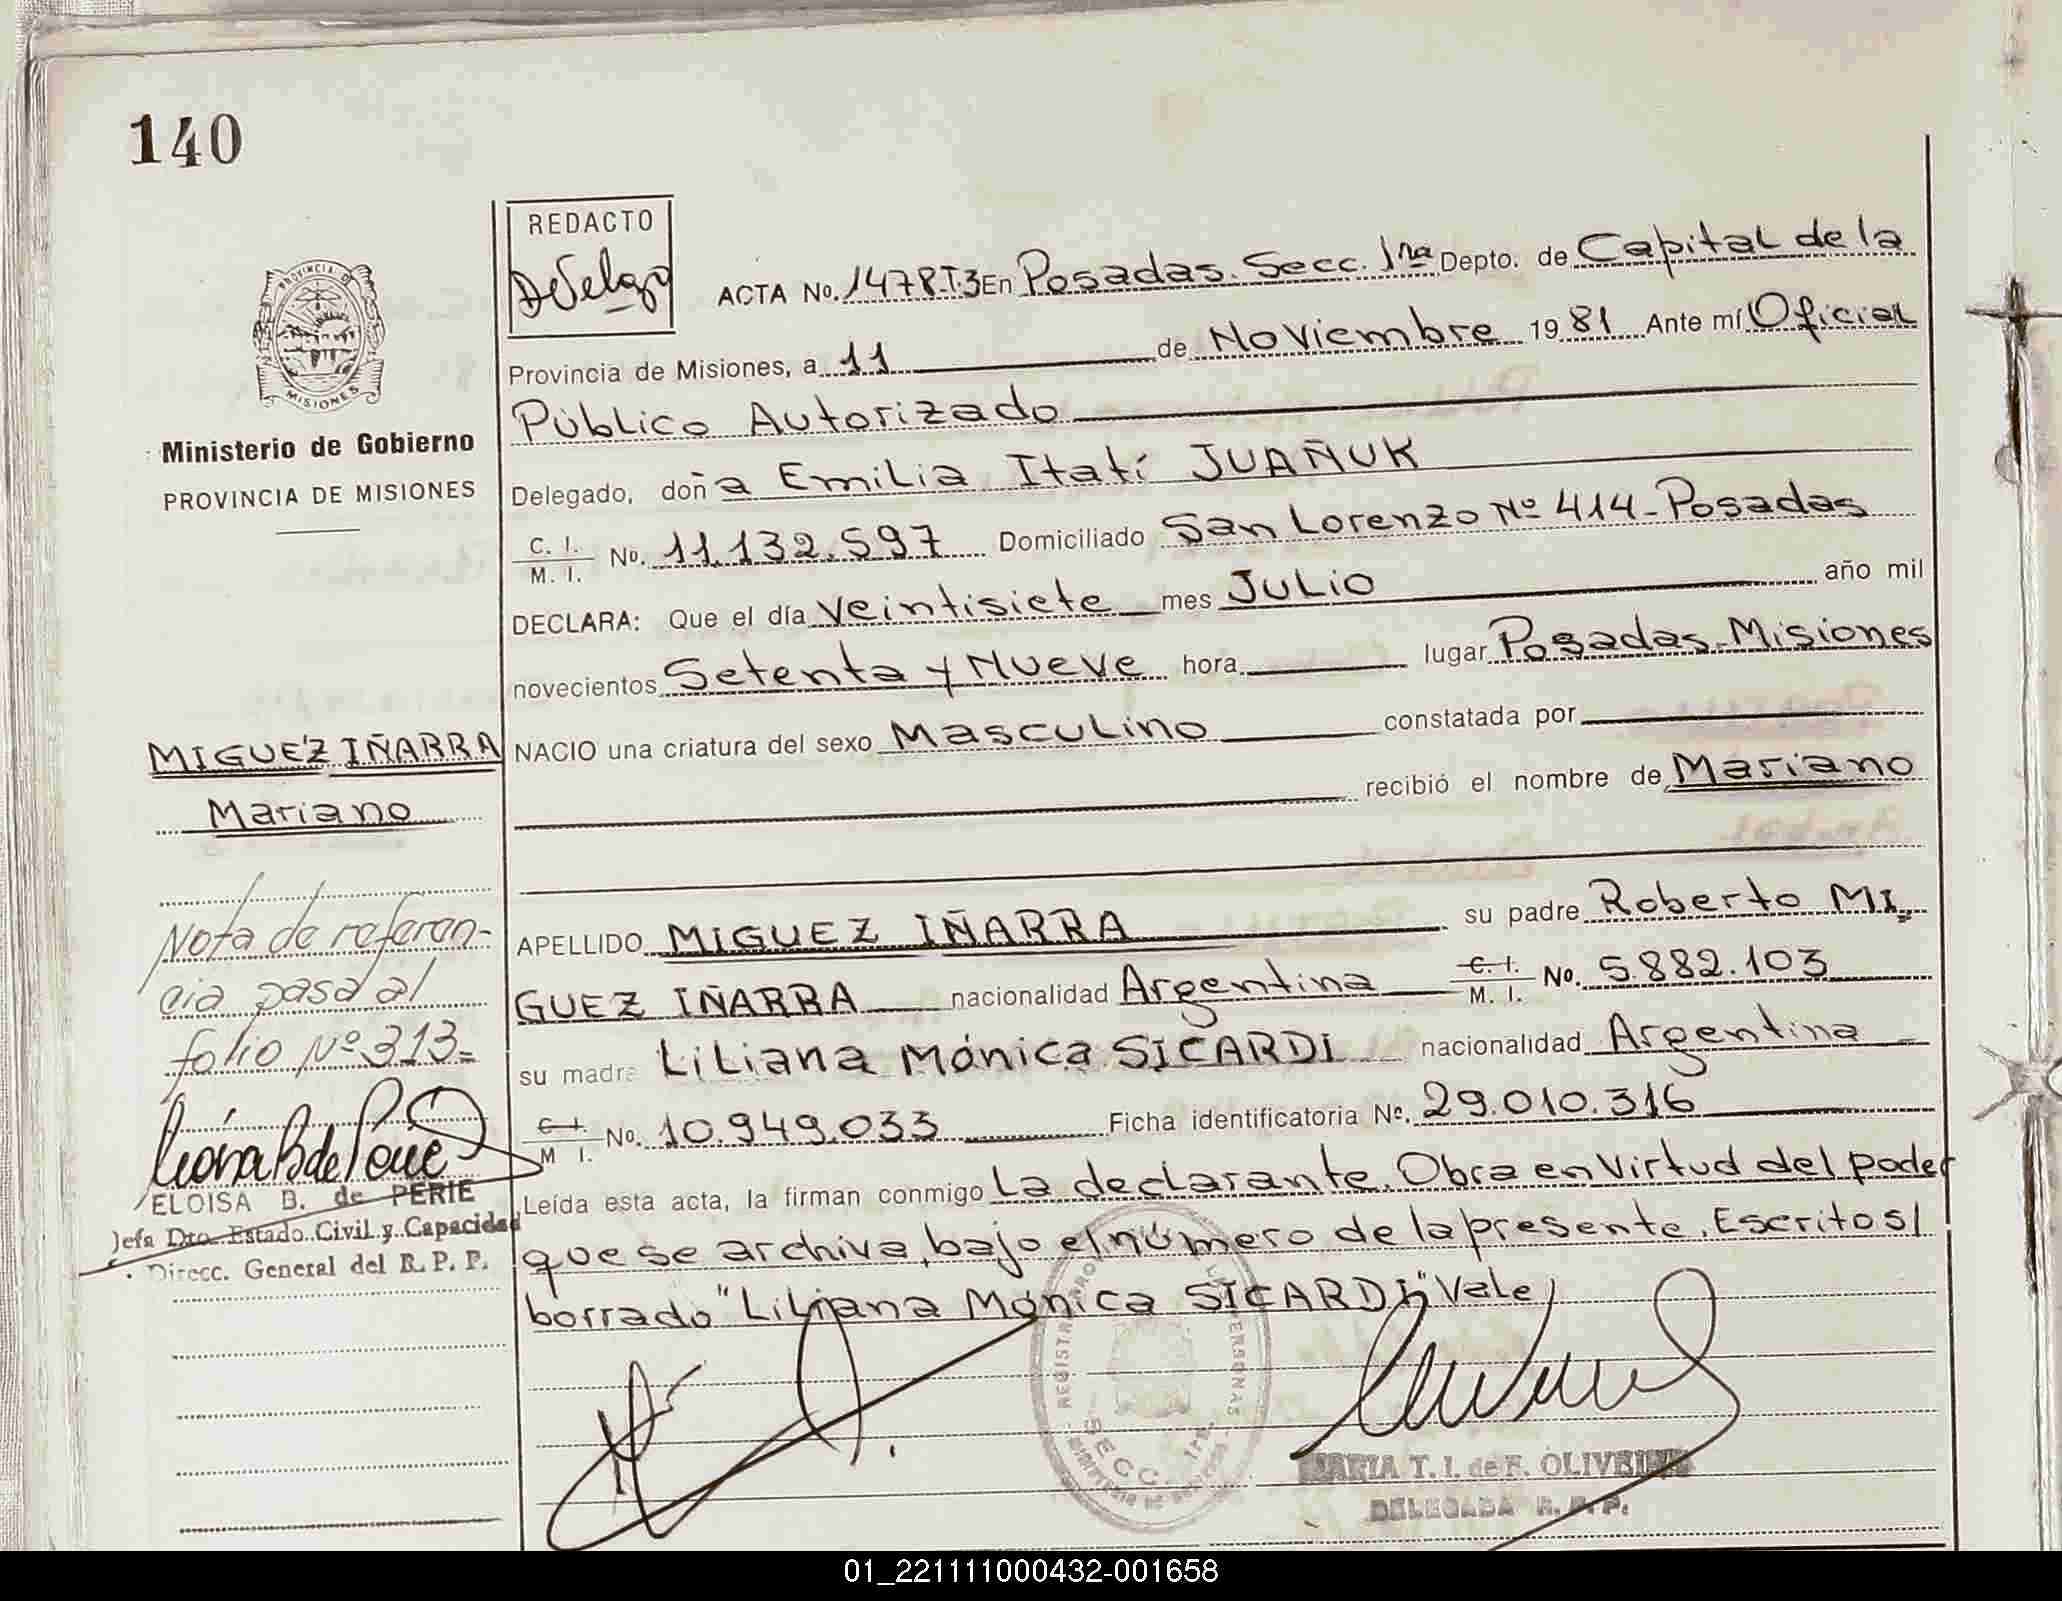 140
REDACTO
ACTA No. 1478-T.3 En Posadas. Secc. 1ra Depto. de Capital de la
Provincia de Misiones, a 11 de Noviembre 1981 Ante mí Oficial
Público Autorizado
Delegado, doña Emilia Itatí JUAÑUK
C. I.
M. I. No. 11.132.597 Domiciliado San Lorenzo Nº 414-Posadas
DECLARA: Que el día veintisiete mes Julio año mil
novecientos Setenta y Nueve hora lugar Posadas-Misiones
NACIO una criatura del sexo Masculino constatada por
recibió el nombre de Mariano
APELLIDO MIGUEZ IÑARRA su padre Roberto MI
GUEZ IÑARRA nacionalidad Argentina C. I. M. I. No. 5.882.103
su madre Liliana Mónica SICARDI nacionalidad Argentina
C. I. M. I. No. 10.949.033 Ficha identificatoria No. 29.010.316
Leída esta acta, la firman conmigo La declarante. Obra en virtud del poder
que se archiva, bajo el número de la presente. Escrito s/
borrado "Liliana Mónica SICARDI" Vale
PROVINCIA DE
MISIONES
Ministerio de Gobierno
PROVINCIA DE MISIONES
MIGUEZ IÑARRA
Mariano
Nota de referen-
cia pasa al
folio Nº 313-
ELOISA B. de PERIE
Jefa Dto. Estado Civil y Capacidad
Direcc. General del R. P. P.
SECC. 1ra.
MARIA T. I. de F. OLIVEIRA
DELEGADA R. P. P.
01_221111000432-001658